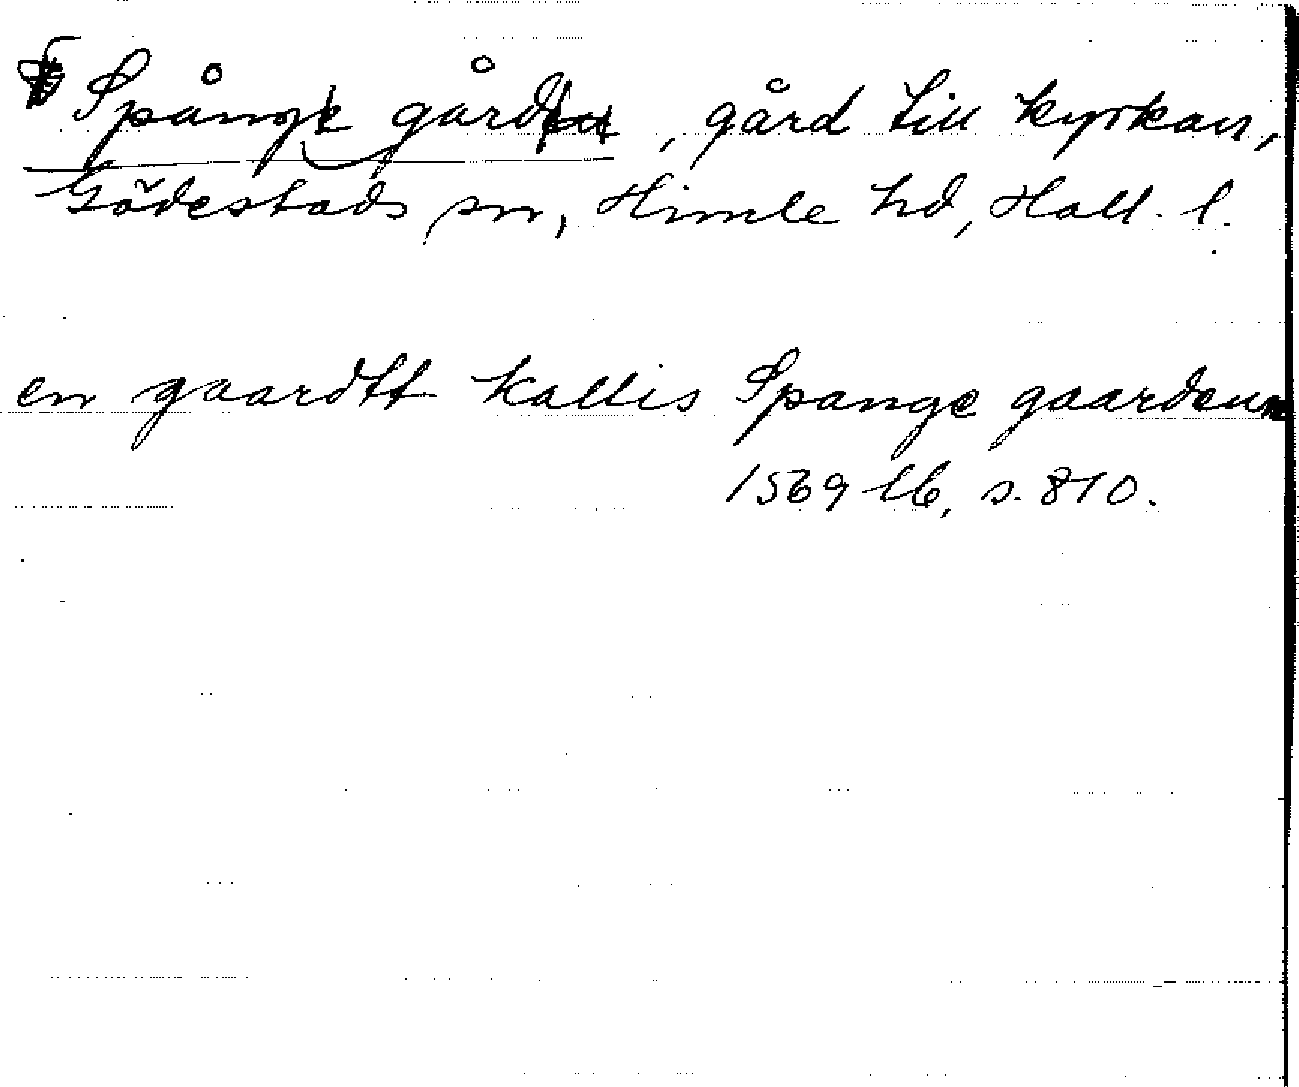 Spånggård, gård till kyrkan,
Gödestads sn, Himle hd, Hall. l.
en gaardtt kallis Spange gaarden
1569 lb, s. 810.